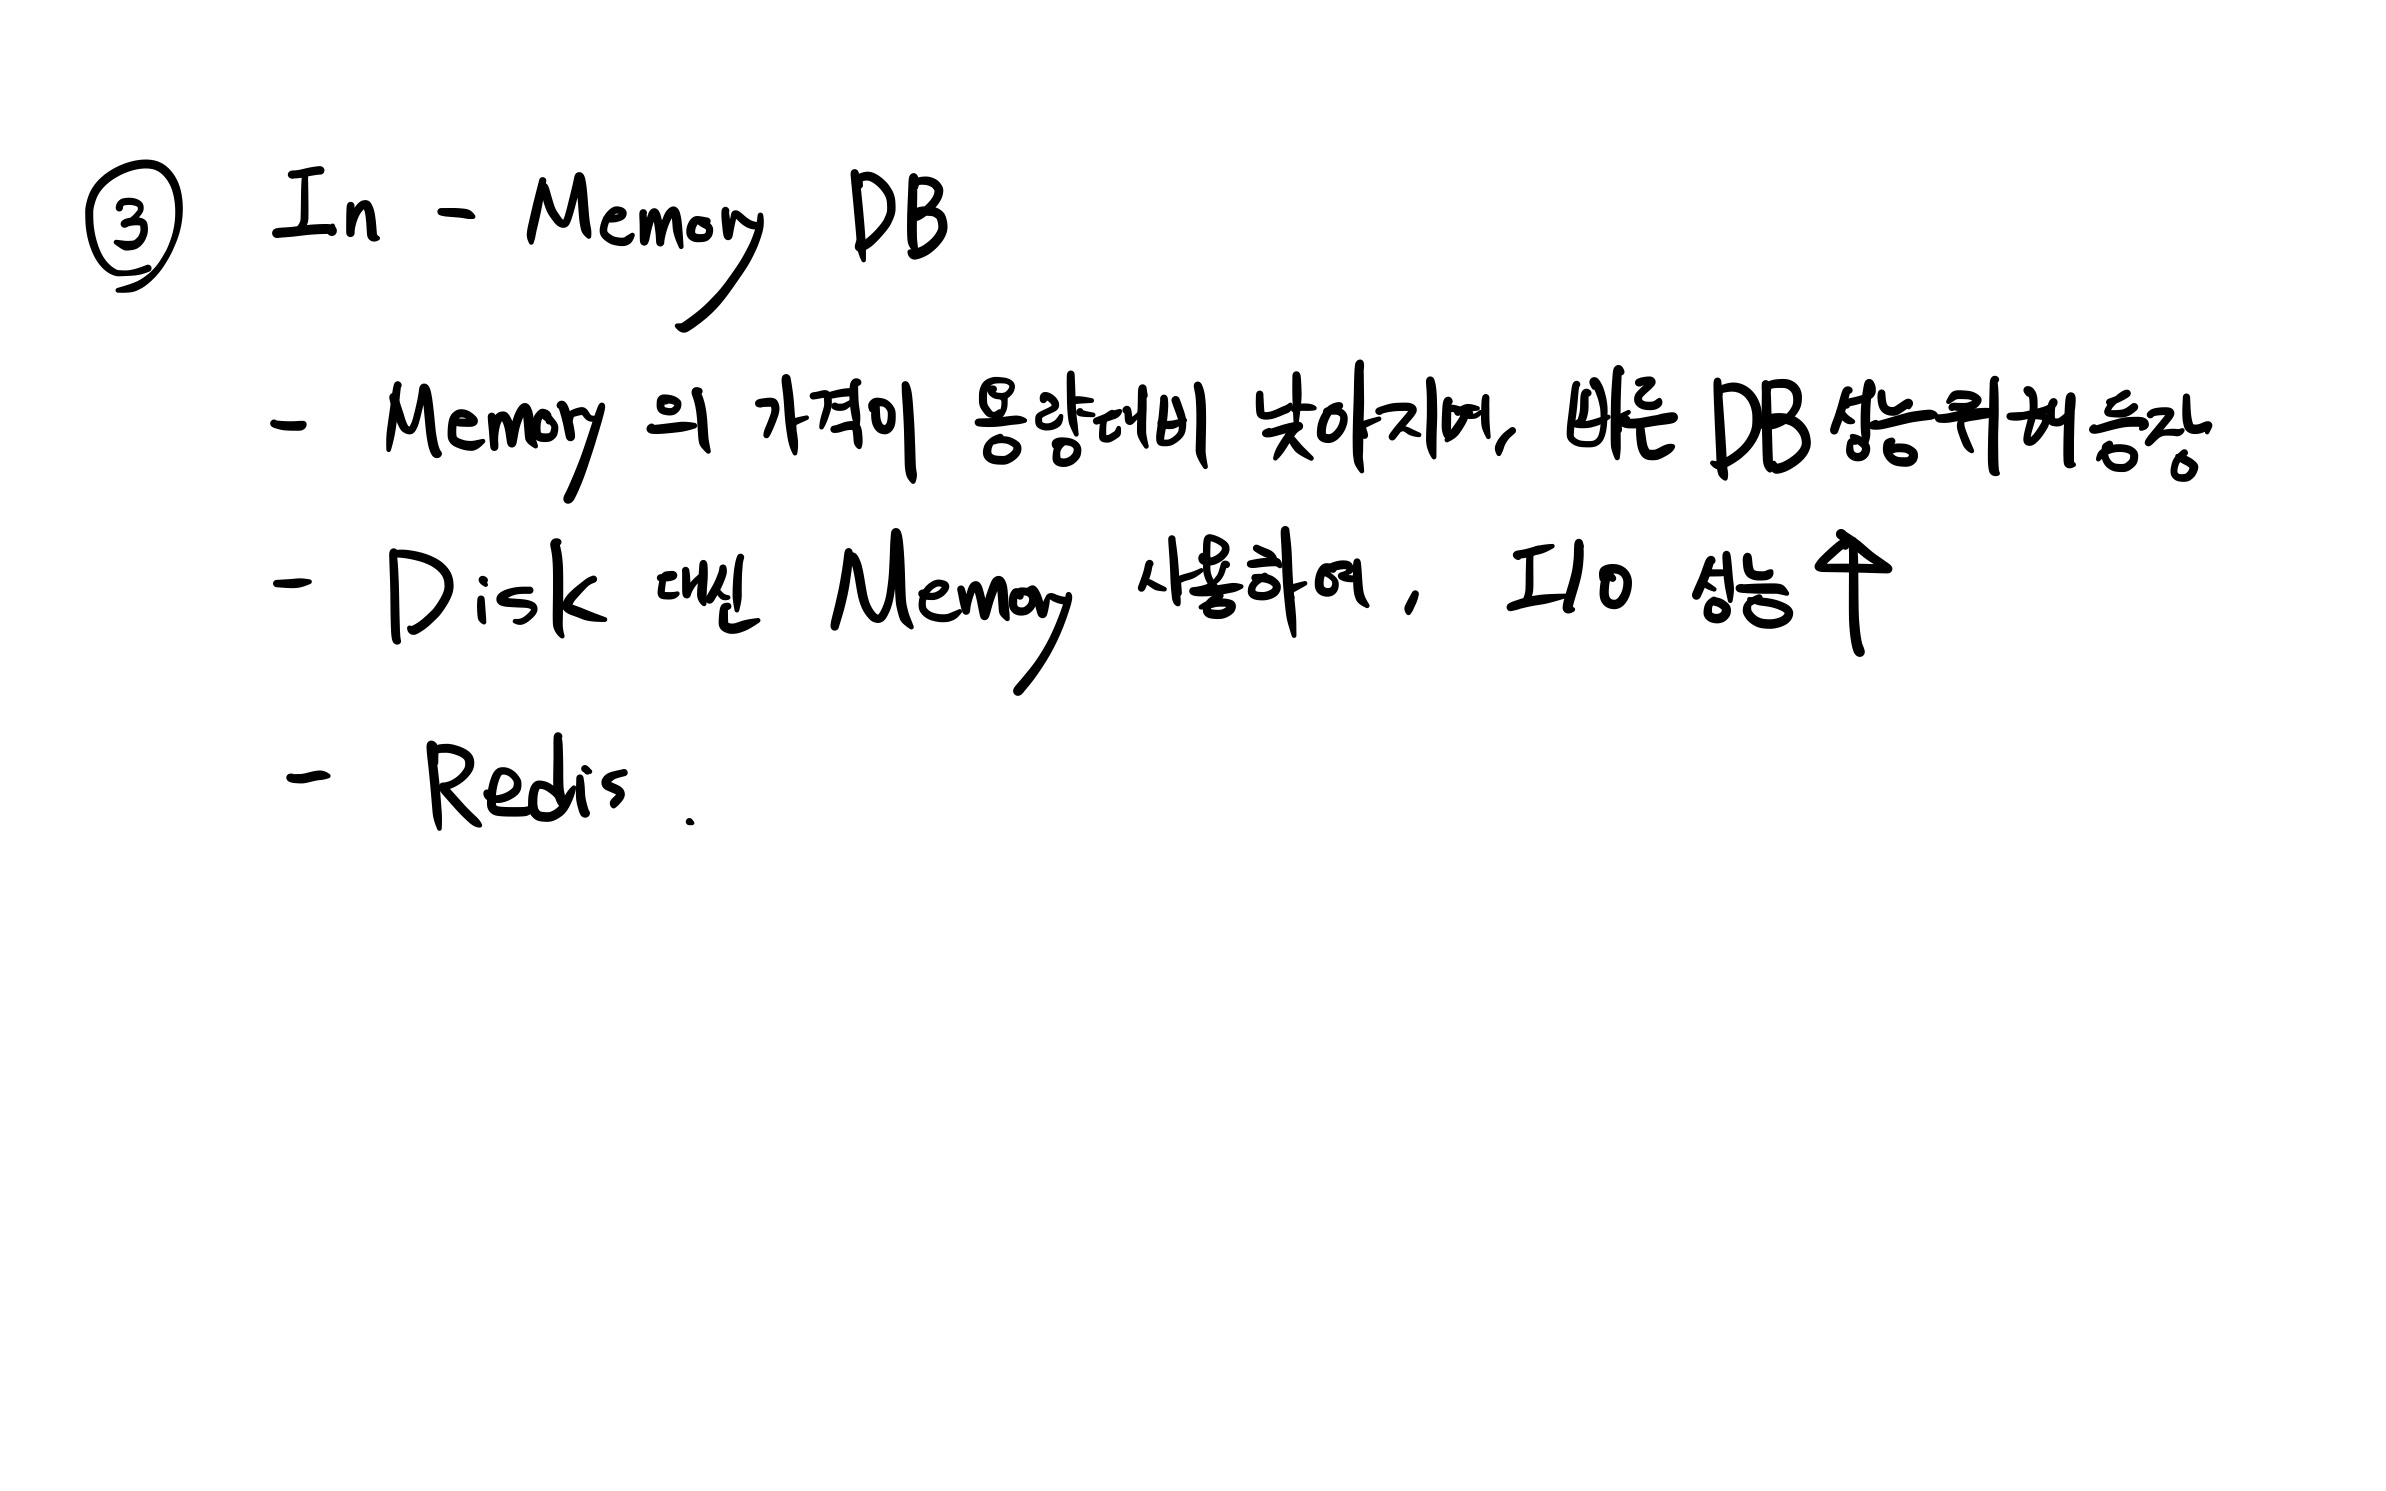 ③ In - Memory DB
- Memory의 가격이 용량에 낮아지며, 빠른 DB 성능 두개 증장
- Disk 대신 Memory 사용하여, I/O 성능 ↑
- Redis.